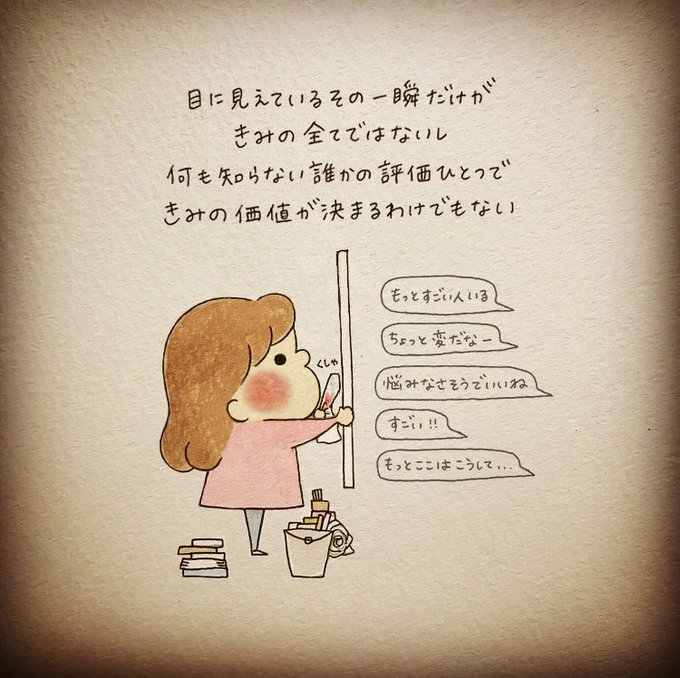 目に見えているその一瞬だけが
きみの全てではないし
何も知らない誰かの評価ひとつで
きみの価値が決まるわけでもない
くしゃ
もっとすごい人いる
ちょっと変だなー
悩みなさそうでいいね
すごい!!
もっとここはこうして...